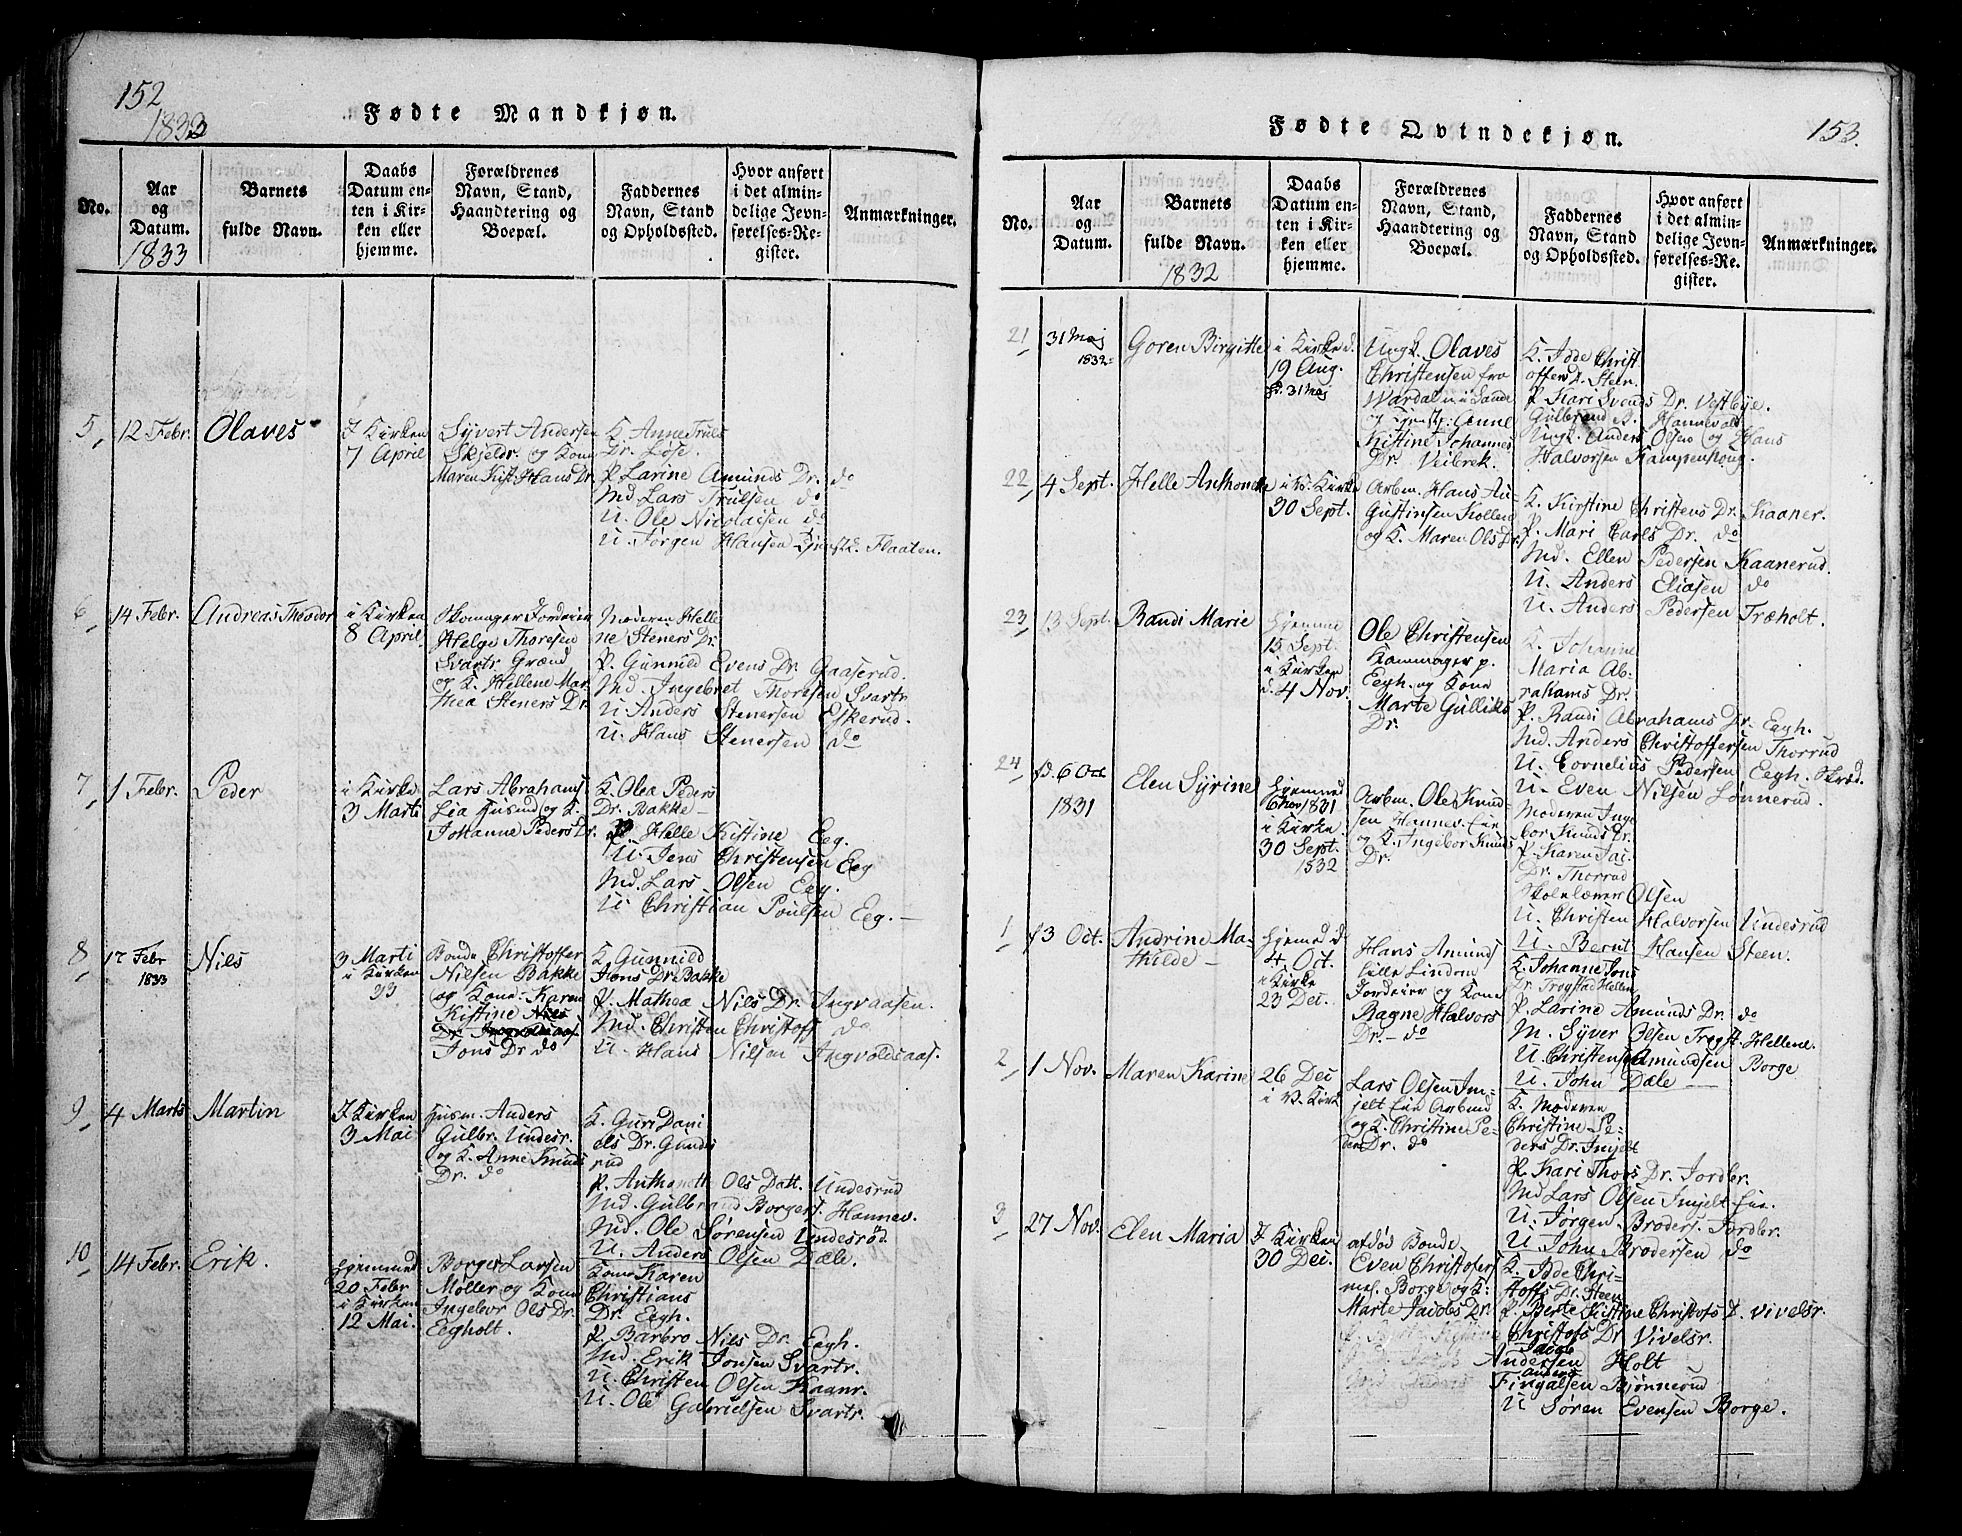 152
1833
Fødte Mandkjøn.
No.
Aar
og
Datum.
1833
Barnets
fulde Navn.
Daabs
Datum en-
ten i Kir-
ken eller
hjemme.
Forældrenes
Navn, Stand,
Haandtering og
Boepæl.
Faddernes
Navn, Stand
og Opholdssted.
Hvor anført
i det almin-
delige Jevn-
førelses-Re-
gister.
Anmærkninger.
5,
12 Febr.
Olaves
I Kirken
7 April
Syvert Andersen
Skjeldr. og Kone
Maren Kist. Hans Dr.
K. Anne Truls
Dr. Løse.
P. Larine Amunds Dr. do
Md. Lars Trulsen do
U. Ole Nicolaisen do
U. Jørgen Hansen Flaaten.
6,
14 Febr.
Andreas Theodor
i Kirken
8 April
Skomager
Helge Thoresen
Svartr. Grænd
og K. Hellene Mar
thea Steners Dr.
Moderen Helle
ne Steners Dr.
P. Gunnild Evens Dr. Gaaserud.
Md. Ingebret Thoresen Svartr
U. Anders Stenersen Eskerud.
U. Hans Stenersen do
7,
1 Febr.
Peder
i Kirken
3 Marti
Lars Abrahams
Lia Husmd og K.
Johanne Peders Dr.
K. Olea Peders
Dr. Bakke
P. Helle Kistine Eeg.
U. Jens Christensen Eeg
Md. Lars Olsen Eeg.
U. Christian Poulsen Eeg.
8,
17 Febr
1833
Niels
3 Marti
i Kirken
33
Bonde Christoffer
Nilsen Bakke
og Kone Karen
Kistine Niels
Jons Dr do
K. Gunnild
Jons Dr. Bakke
P. Mathea Nils Dr. Ingvaasen.
Md. Christen Christoff do
U. Hans Nilsen Ingvoldsaas.
9,
4 Marts
Martin
I Kirken
3 Mai
Husm. Anders
Gulbr. Undesr.
og K. Anne Knuds
Dr. do
K. Guri Dani
els Dr. Gunds
rud
P. Anthonett Ols Datt. Undesrud
Md. Gulbrand Borgers. Hannev.
Md. Ole Sørensen Undesrød
U. Anders Olsen Dæle.
10,
14 Febr.
Erik.
Hjemmed
20 Febr
i Kirken
12 Mai.
Borger Larsen
Møller og Kone
Ingebor Ols Dr.
Eegholt.
Kone Karen
Christians
Dr. Eegh.
P. Barbro Nils Dr. Eegh.
Md. Erik Jonsen Svartr.
U. Christen Olsen Kaanr.
U. Ole Gabrielsen Svartr.
Fødte Qvindekjøn.
153.
No.
Aar
og
Datum.
Barnets
fulde Navn.
1832
Daabs
Datum en-
ten i Kir-
ken eller
hjemme.
Forældrenes
Navn, Stand,
Haandtering og
Boepæl.
Faddernes
Navn, Stand
og Opholdssted.
Hvor anført
i det almin-
delige Jevn-
førelses-Re-
gister.
Anmærkninger.
21,
31 Maj
1832
Goren Birgitte
i Kirke d.
19 Aug.
f. 31 Maj
Ungk. Olaves
Christensen fra
Wardal in i Sande
og Anne
Kistine Johannes
Dr. Veibrek.
K. Idde Christ
offers D. Steen.
P. Kari Svends Dr. Vestbye.
Gulbrand Hannevold
Ungk. Anders Olsen og Hans
Halvorsen Kampenhoug.
22,
4 Sept.
Helle Anthonette
i V. Kirke
30 Sept.
Arbm. Hans Au-
gustinsen Kollen
og K. Maren Ols Dr
K. Kirstine Christens Dr. Kaaner.
P. Mari Carls Dr. do
Md. Ellen Pedersen Kaanerud.
U. Anders Eliasen do
U. Anders Pedersen Træholt.
23,
13 Sept.
Randi Marie
Hjemme
15 Sept.
i Kirken
d. 4 Nov.
Ole Christensen
Kammager p.
Eegh. og Kone
Marte Gulliks
Dr.
K. Johanne
Maria Ab-
rahams Dr.
P. Randi Abrahams Dr. Eegh.
Md. Anders Christoffersen Thorrud
U. Cornelius Pedersen Eegh. Skræd.
U. Even Nilsen Lønnerud.
24,
d. 6 Oct
1831
Elen Syrine
Hjemmed
6 Nov 1831
i Kirke
30 Sept.
1832
Arbm. Ole Knud
sen Hannev. Eie
og K. Ingebor Knuds
Dr.
Moderen Inge
bor Knuds Dr.
P. Karen Jac.
Dr. Thorrud
Skolelærer Olsen
U. Christen Halvorsen Undesrud
U. Bernt Hansen Steen.
1,
f 3 Oct.
Andrine Ma-
thilde
Hjemmd d
4 Oct.
i Kirke
23 Dec.
Hans Amunds
Lille Lindem
Jordeier og Kone
Ragne Halvors
Dr. do
K. Johanne Jons
Dr. Trogstad Hellen
P. Larine Amunds Dr. do
M. Syver Olsen Trogst. Hellene.
U. Christensen Amundsen Borge
U. John Dale
2,
1 Nov.
Maren Karine
26 Dec
i V. Kirk
Lars Olsen In-
jelt Eie Arbmd
og K. Christine Pe-
ders Dr. do
K. Moderen
Christine Pe-
ders Dr. Injelt
P. Kari Thors Dr. Jordbr.
Md Lars Olsen Injelt Eie.
U. Jørgen Broders. Jordbr.
U. John Brodersen do
3,
27 Nov.
Elen Maria
I Kirken
30 Dec.
afdød Bonde
Even Christoffer
Borge og K.
Marte Jacobs Dr.
K. Idde Chri-
stoffs Dr. Steen
P. Berte Kistine Christofs D. Vivelsr.
Christofs Dr Vivelsr.
Jacob
Andersen Holt
Anders
Fingalsen Bjønnerud
U Søren Evensen Borge.